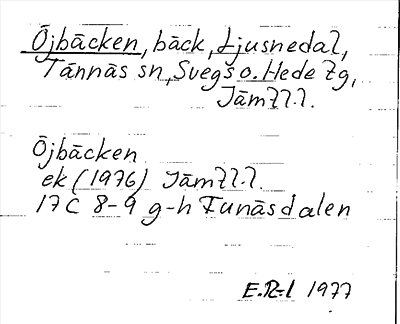 Öjbäcken, bäck, Ljusnedal,
Tännäs sn, Svegs o. Hede tg,
Jämtl.l.
Öjbäcken
ek (1976) Jämtl.l.
17C 8-9 g-h Funäsdalen
1977